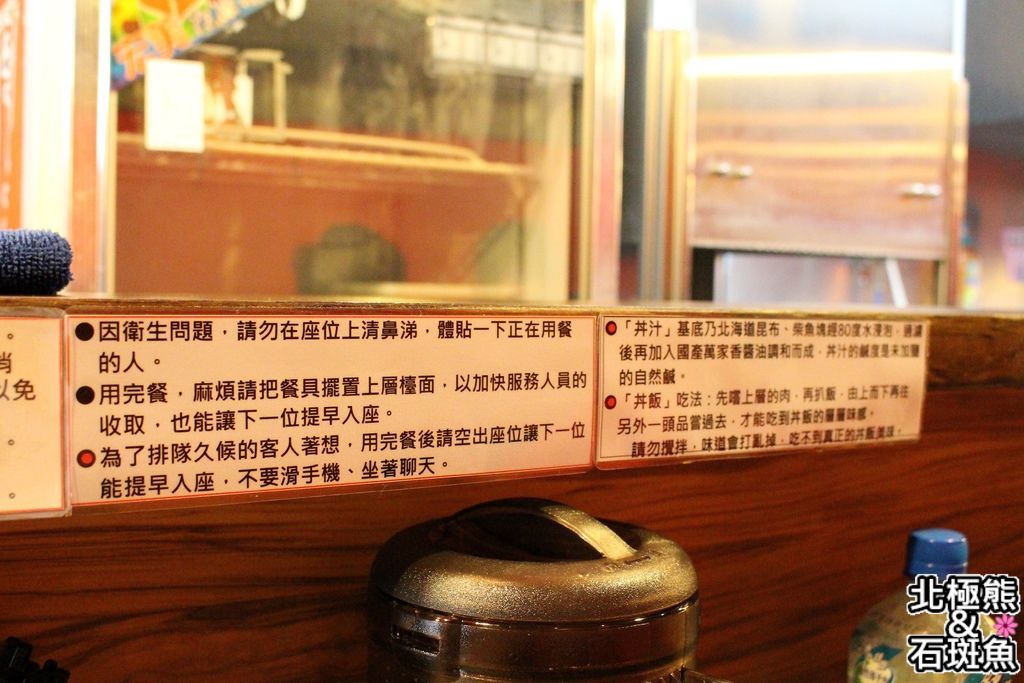 。
以免
。
●因衛生問題，請勿在座位上清鼻涕，體貼一下正在用餐
的人。
●用完餐，麻煩請把餐具擺置上層檯面，以加快服務人員的
收取，也能讓下一位提早入座。
●為了排隊久候的客人著想，用完餐後請空出座位讓下一位
能提早入座，不要滑手機、坐著聊天。
●「丼汁」基底乃北海道昆布、柴魚塊經80度水浸泡，過濾
後再加入國產萬家香醬油調和而成，丼汁的鹹度是未加鹽
的自然鹹。
●「丼飯」吃法：先嚐上層的肉，再扒飯，由上而下再往
另外一頭品嘗過去，才能吃到丼飯的層層味感。
請勿攪拌，味道會打亂掉，吃不到真正的丼飯美味。
北極熊
&
石斑魚